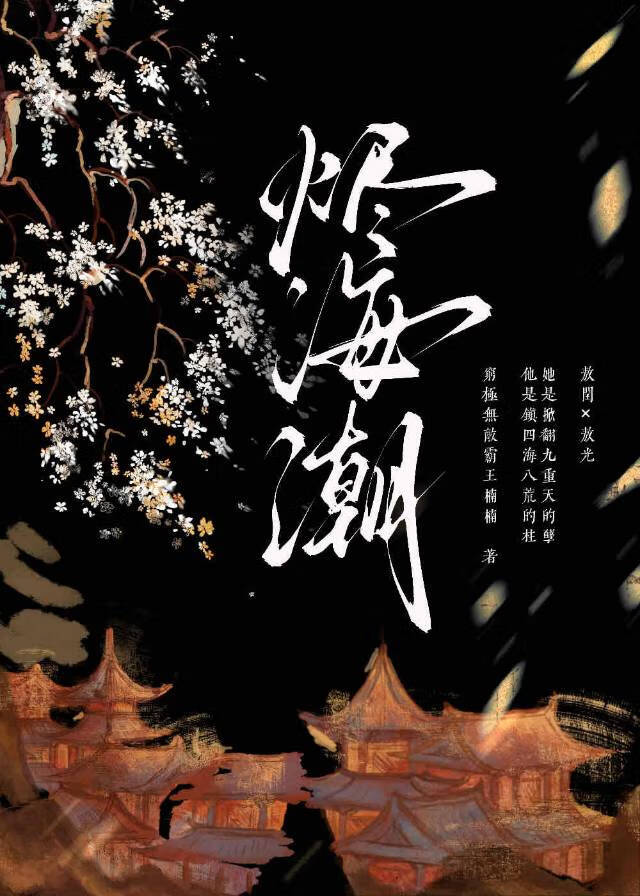 烬海潮
敖閏×敖光
她是掀翻九重天的孽
他是鎖四海八荒的柱
窮極無敵霸王楠楠 著